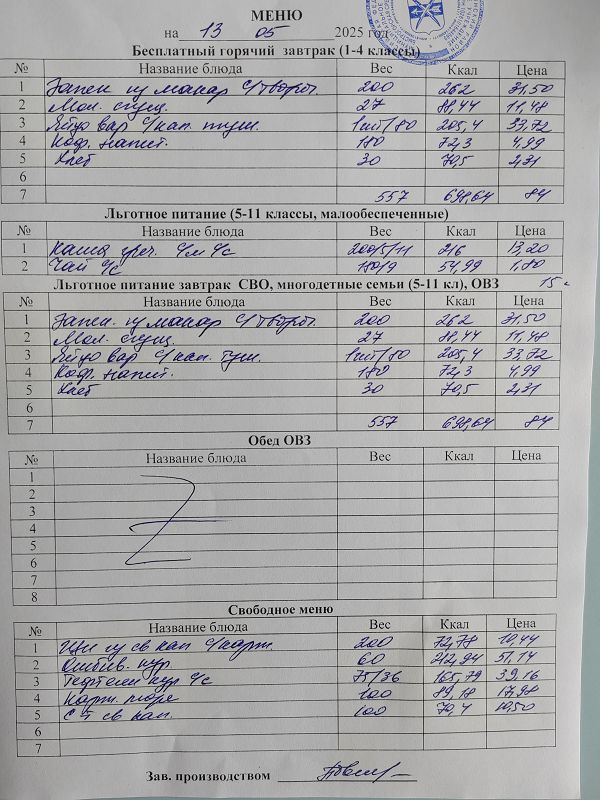 МЕНЮ
на 13 05 2025 год
Бесплатный горячий завтрак (1-4 классы)
№ Название блюда Вес Ккал Цена
1 Запек из макар с/творог. 200 262 31,50
2 Мол. сгущ. 27 88,44 11,48
3 Яйцо вар с/кап. туш. 1шт/80 205,4 33,72
4 Коф. напит. 180 72,3 4,99
5 Хлеб 30 70,5 2,31
6
7 557 698,64 84
Льготное питание (5-11 классы, малообеспеченные)
№ Название блюда Вес Ккал Цена
1 Каша греч. с/м с/с 200/5/11 216 13,20
2 Чай с/с 180/9 54,99 1,80
Льготное питание завтрак СВО, многодетные семьи (5-11 кл), ОВЗ 15
№ Название блюда Вес Ккал Цена
1 Запек. из макар с/творог. 200 262 31,50
2 Мол. сгущ. 27 88,44 11,48
3 Яйцо вар с/кап. туш. 1шт/80 205,4 33,72
4 Коф. напит. 180 72,3 4,99
5 Хлеб 30 70,5 2,31
6
7 557 698,64 84
Обед ОВЗ
№ Название блюда Вес Ккал Цена
1
2
3
4
5
6
7
8
Свободное меню
№ Название блюда Вес Ккал Цена
1 Щи из св кап с/карт. 200 72,78 10,44
2 Отбив. кур. 60 212,94 51,14
3 Тефтели кур с/с 75/36 165,79 39,16
4 Карт. пюре 100 89,18 17,98
5 С-т св кап. 100 70,4 10,50
6
7
Зав. производством